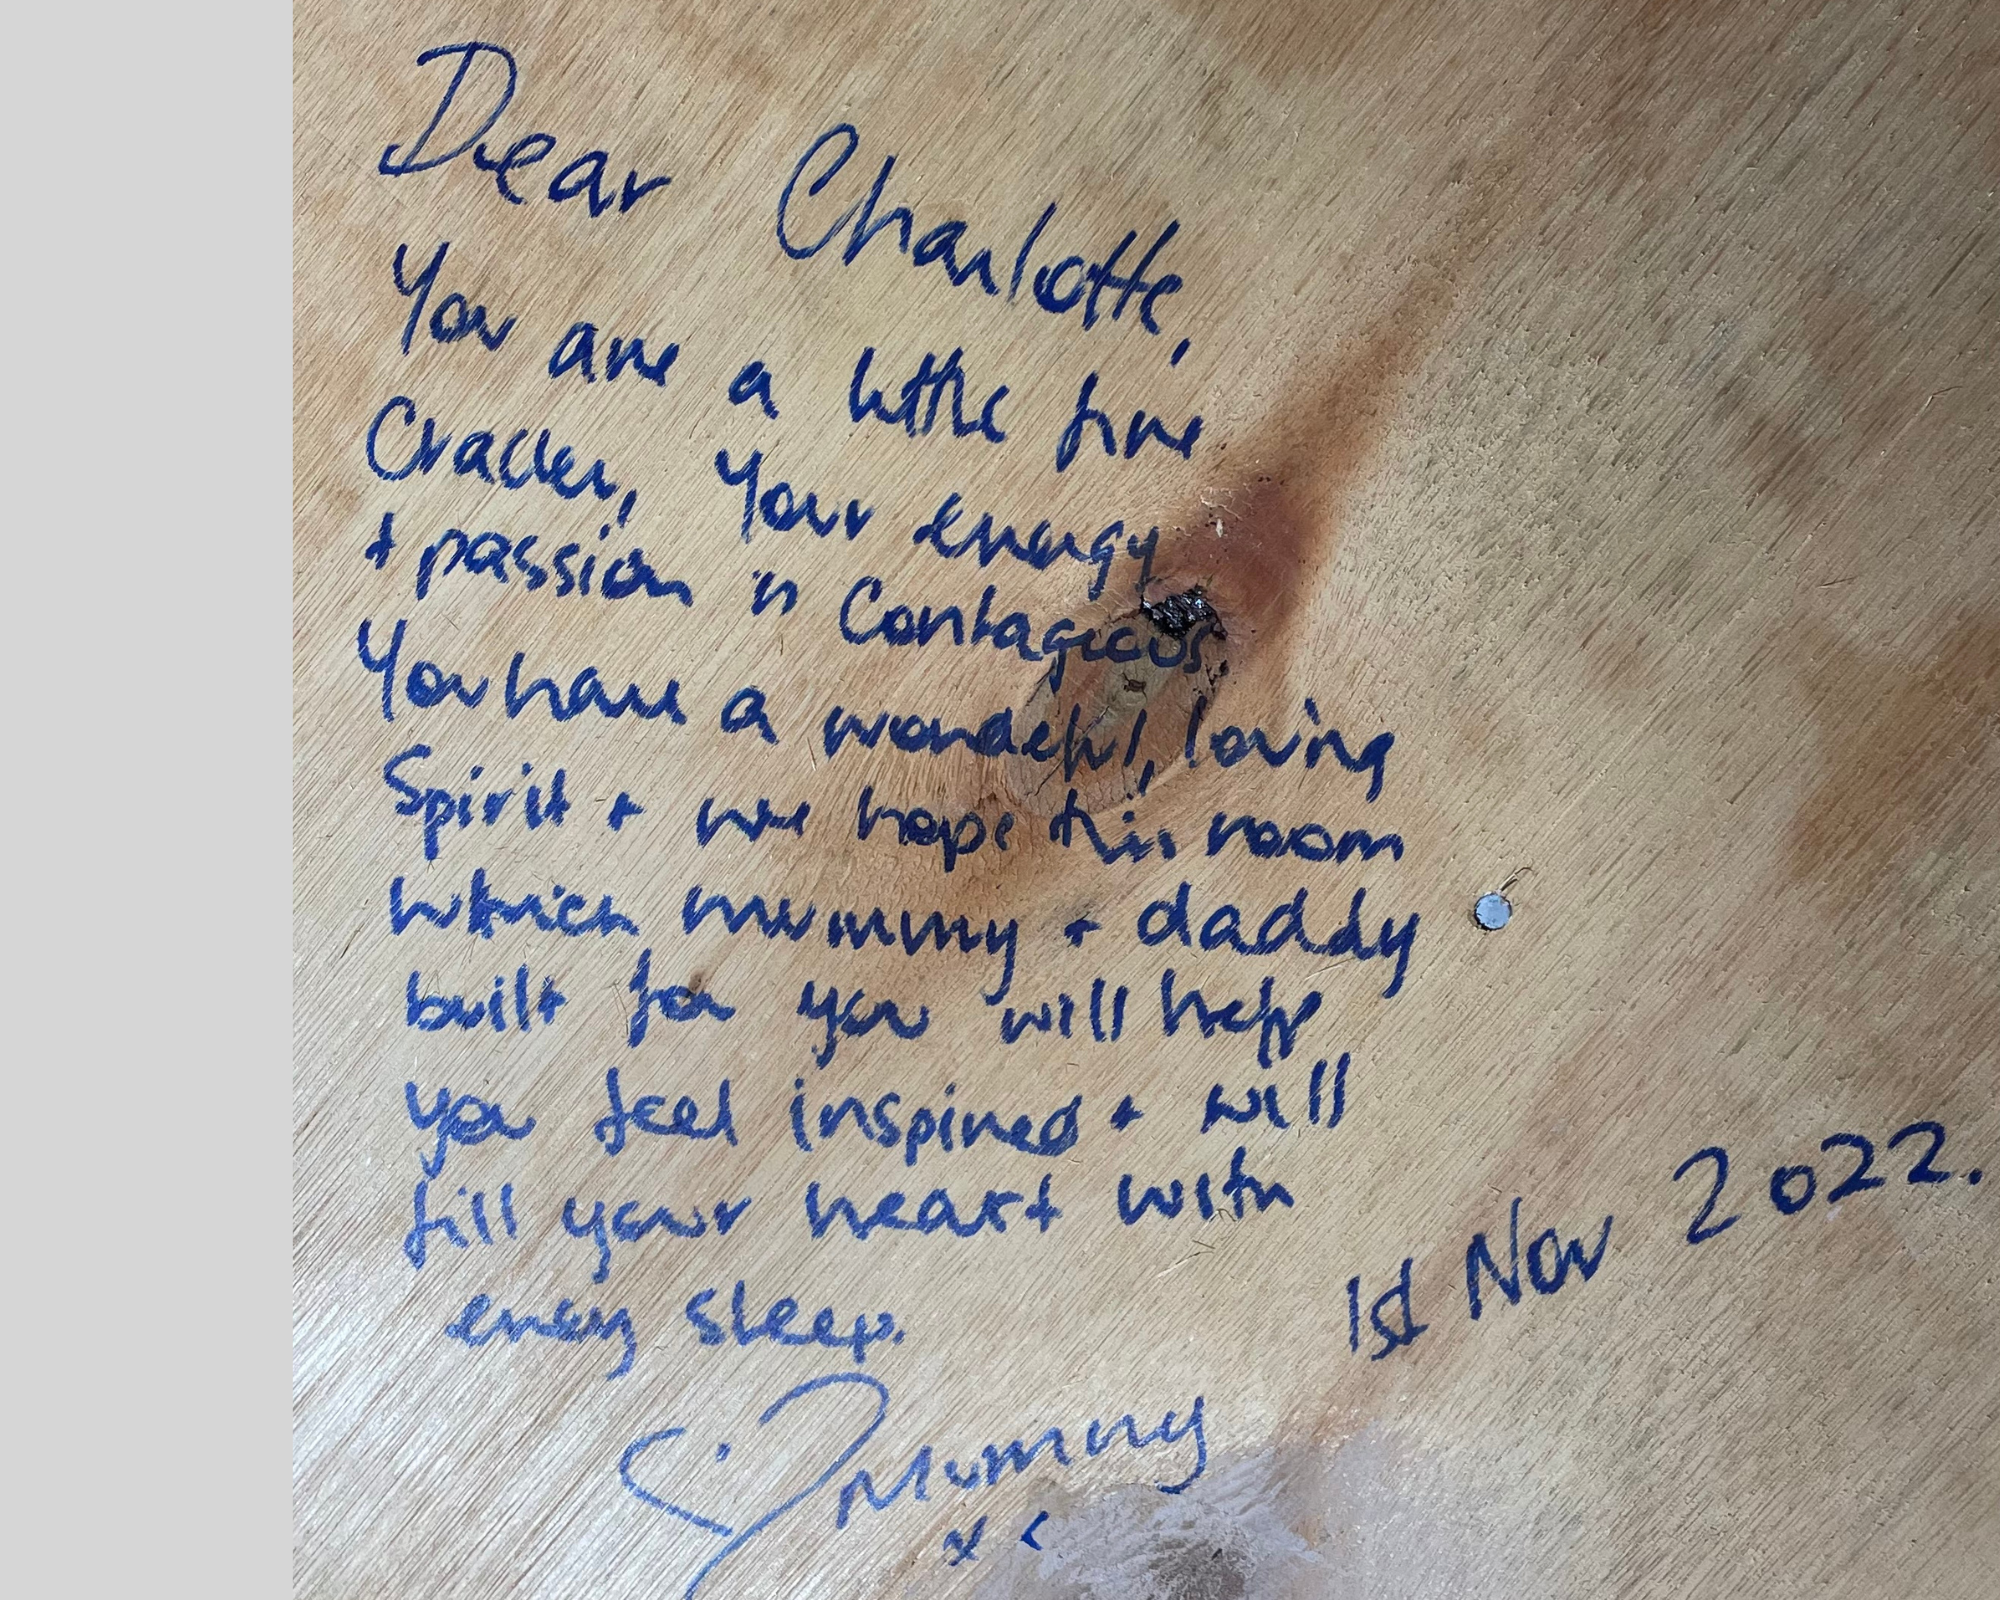 Dear Charlotte,
You are a little fire
Cracker, Your energy
+ passion is Contagious
You have a wonderful, loving
Spirit + we hope this room
which mummy + daddy
built for you will help
you feel inspired + will
fill your heart with
every sleep.
1st Nov 2022.
Mummy
x